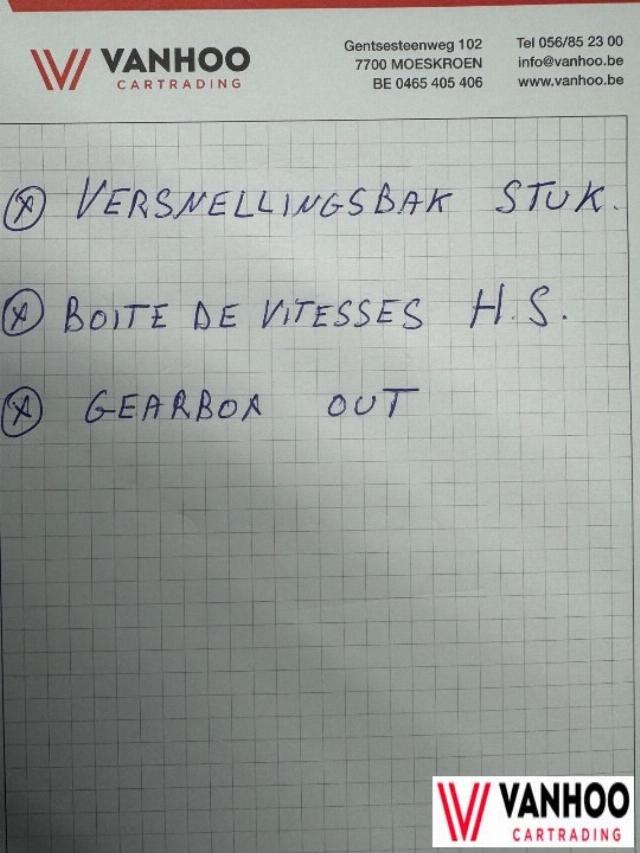 VANHOO
CARTRADING
Gentsesteenweg 102
7700 MOESKROEN
BE 0465 405 406
Tel 056/85 23 00
info@vanhoo.be
www.vanhoo.be
VERSNELLINGSBAK STUK.
BOITE DE VITESSES H.S.
GEARBOX OUT
VANHOO
CARTRADING